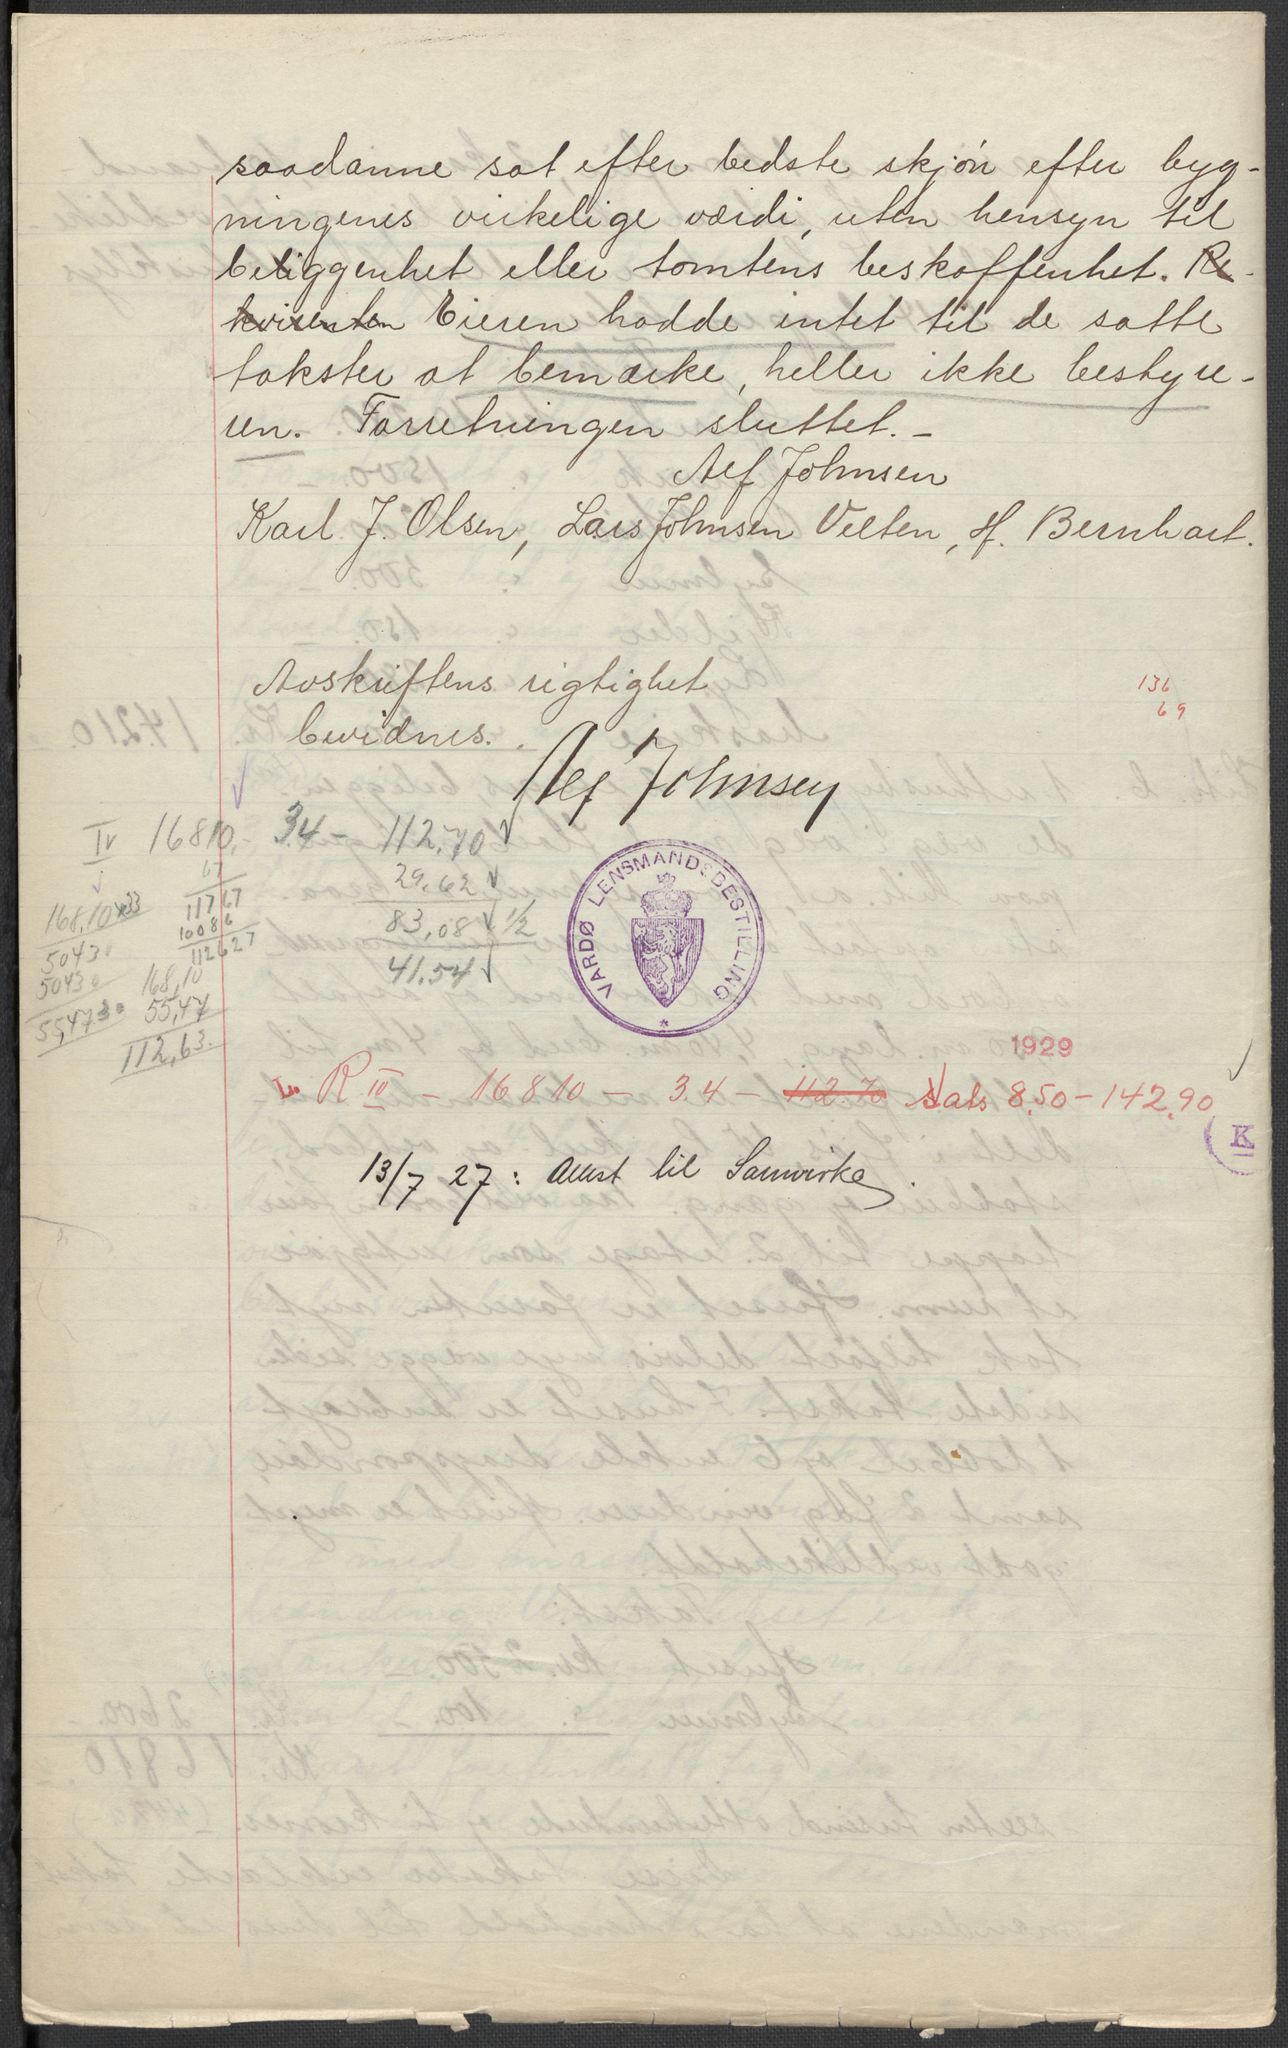 saadanne sat efter bedste skjøn efter byg-
ningenes virkelige værdi, uten hensyn til
beliggenhet eller tomtens beskaffenhet. Re-
kvirenten Eieren hadde intet til de satte
takster at bemærke, heller ikke bestyre-
ren. Forretningen sluttet. –
Alf Johnsen
Karl J. Olsen, Lars Johnsen Velten, H. Bernhart.
Avskriftens rigtighet
bevidnes.
136
69
Alf Johnsen
IV 16810,- 3.4 – 112,70
67
29.62
11767
168,10 x 33
10086
83,08 1/2
5043
112627
41.54
5043
168,10
55,473
55,47
112,63.
VARDØ LENSMANDSBESTILLING
1929
R IV – 16810 – 3.4 – 112.70 Sats 8.50 – 142.90
K
13/7 27: til Samvirke.